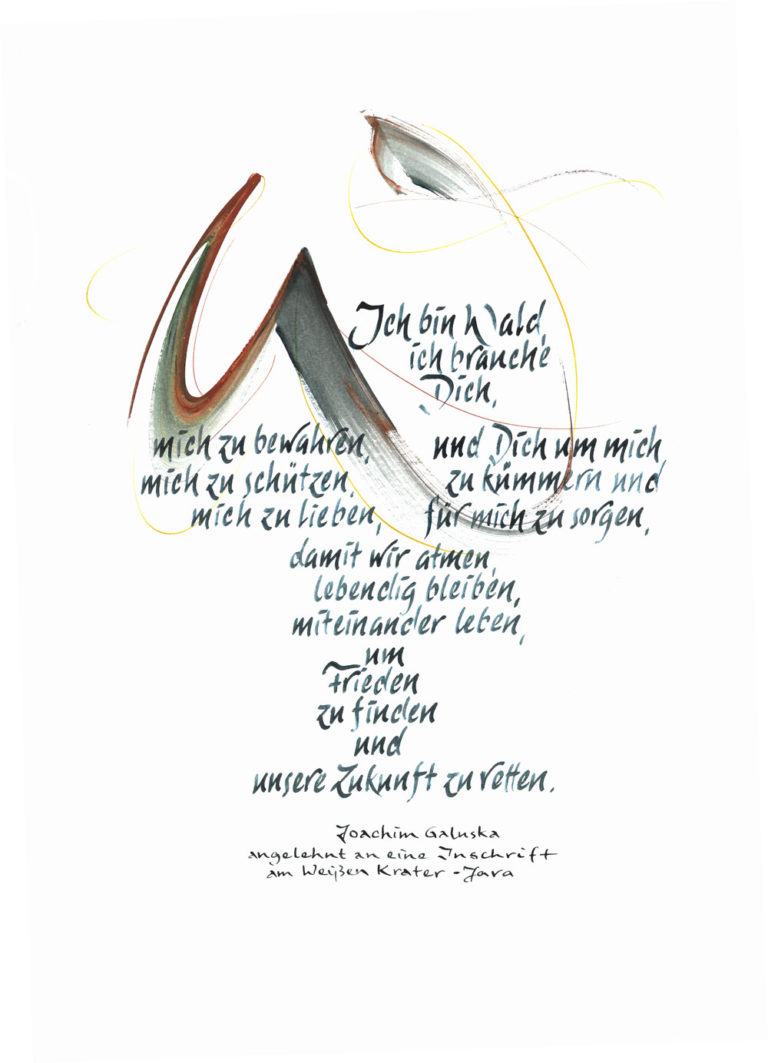 Ich bin Wald,
ich brauche
Dich,
mich zu bewahren,
mich zu schützen,
mich zu lieben,
und Dich um mich
zu kümmern und
für mich zu sorgen,
damit wir atmen,
lebendig bleiben,
miteinander leben,
um
Frieden
zu finden
und
unsere Zukunft zu retten.
Joachim Galuska
angelehnt an eine Inschrift
am Weißen Krater - Java